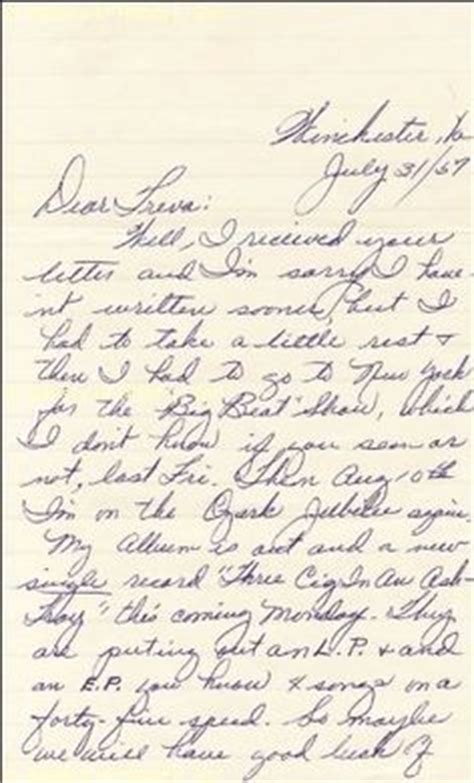 Winchester, Va
July 31/57
Dear Treva:
Well, I recieved your
letter and I'm sorry I have
int written sooner, but I
had to take a little rest &
then I had to go to New York
for the "Big Beat" Show, which
I don't know if you seen or
not, last Fri. Then Aug 10th
I'm on the Ozark Jubilee again
My Album is out and a new
single record "Three Cig In An Ash
Tray" this coming Monday. They
are puting out an L.P. & and
an E.P. you know 4 songs on a
forty-five speed. So maybe
we will have good luck if